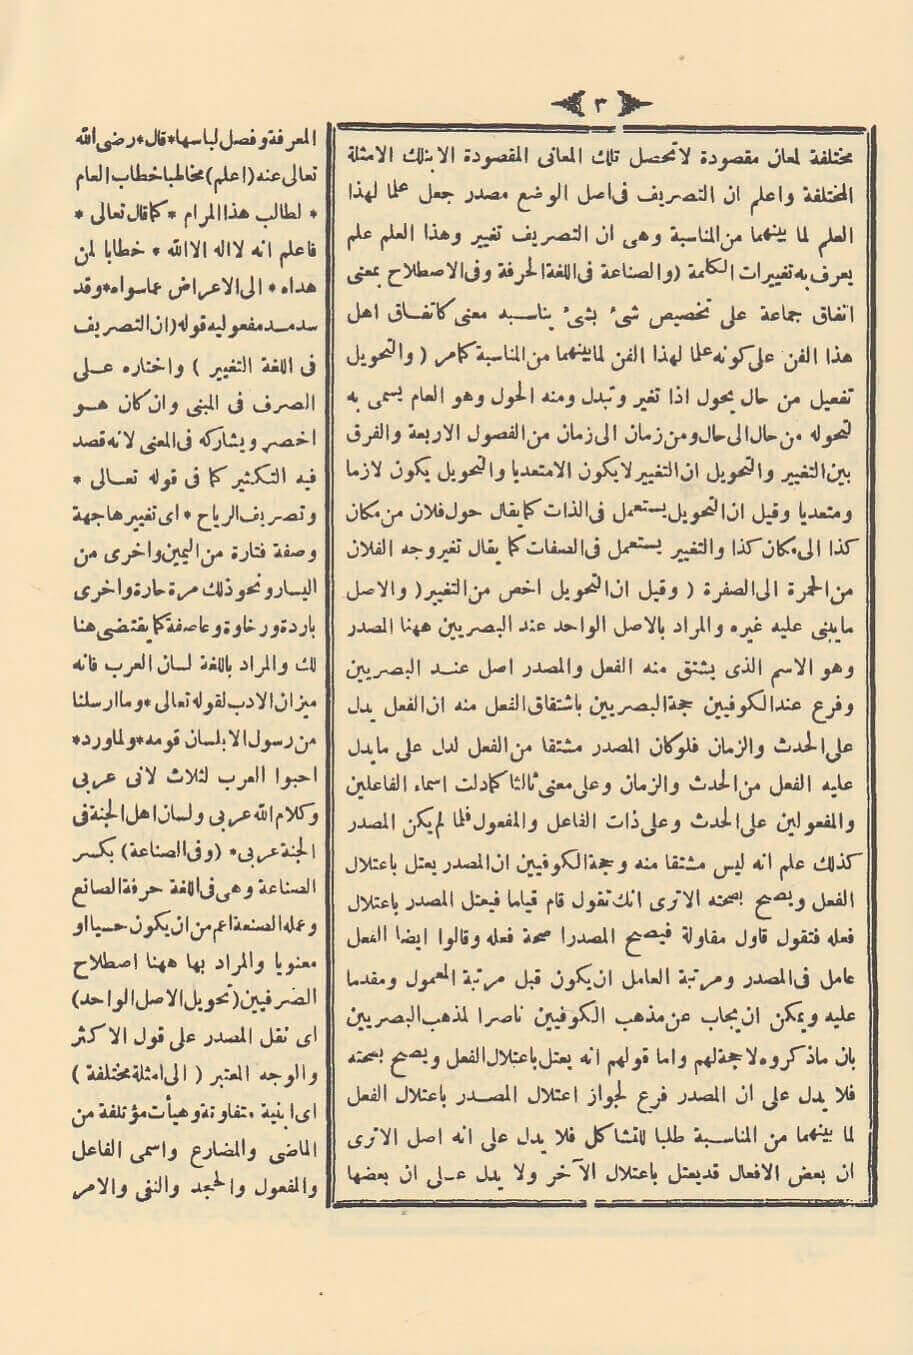 ٣
مختلفة لمعان مقصودة لا تحصل تلك المعانى المقصودة الا بتلك الامثلة
المختلفة واعلم ان التصريف فى اصل الوضع مصدر جعل علما لهذا
العلم لما بينهما من المناسبة وهى ان التصريف تغيير وهذا العلم علم
يعرف به تغييرات الكلمة (والصناعة فى اللغة الحرفة وفى الاصطلاح بمعنى
اتفاق جماعة على تخصيص شئ بشئ يناسبه معنى كاتفاق اهل
هذا الفن على كونه علما لهذا الفن لما بينهما من المناسبة كما مر ( والتحويل
تفعيل من حال يحول اذا تغير وتبدل ومنه الحول وهو العام يسمى به
لتحوله من حال الى حال ومن زمان الى زمان من الفصول الاربعة والفرق
بين التغيير والتحويل ان التغيير لا يكون الا متعديا والتحويل يكون لازما
ومتعديا وقيل ان التحويل يستعمل فى الذات كما يقال حول فلان من مكان
كذا الى مكان كذا والتغيير يستعمل فى الصفات كما يقال تغير وجه الفلان
من الحمرة الى الصفرة ( وقيل ان التحويل اخص من التغيير ( والاصل
ما يبنى عليه غيره والمراد بالاصل الواحد عند البصريين ههنا المصدر
وهو الاسم الذى يشتق منه الفعل والمصدر اصل عند البصريين
وفرع عند الكوفيين حجة البصريين باشتقاق الفعل منه ان الفعل يدل
على الحدث والزمان فلو كان المصدر مشتقا من الفعل لدل على ما يدل
عليه الفعل من الحدث والزمان وعلى معنى ثالثا كما دلت اسماء الفاعلين
والمفعولين على الحدث وعلى ذات الفاعل والمفعول فلما لم يكن المصدر
كذلك علم انه ليس مشتقا منه وحجة الكوفيين ان المصدر يعتل باعتلال
الفعل ويصح بصحته الا ترى انك تقول قام قياما فيعتل المصدر باعتلال
فعله فتقول قاول مقاولة فيصح المصدرا صحة فعله وقالوا ايضا الفعل
عامل فى المصدر ومرتبة العامل ان يكون قبل مرتبة المعمول ومقدما
عليه ويمكن ان يجاب عن مذهب الكوفيين ناصرا لمذهب البصريين
بان ما ذكروه لا حجة لهم واما قولهم انه يعتل باعتلال الفعل ويصح بصحته
فلا يدل على ان المصدر فرع لجواز اعتلال المصدر باعتلال الفعل
لما بينهما من المناسبة طلبا للتشاكل فلا يدل على انه اصل الا ترى
ان بعض الافعال قد يعتل باعتلال الآخر ولا يدل على ان بعضها
المعرفة وفصل لباسها * قال * رضى الله
تعالى عنه (اعلم) مخاطبا خطاب العام
* لطالب هذا المرام * كما قال تعالى *
فاعلم انه لا اله الا الله * خطابا لمن
هداه * الى الاعراض عما سواه * وقد
سد مسد مفعوليه قوله (ان التصريف
فى اللغة التغيير ) واختاره على
الصرف فى المبنى وان كان هو
اخصر ويشاركه فى المعنى لانه قصد
فيه التكثير كما فى قوله تعالى *
وتصريف الرياح * اى تغييرها جهة
وصفة فتارة من اليمين واخرى من
اليسار ونحو ذلك مرة حارة واخرى
باردة ورخاوة وعاصفة كما يقتضى هنا
لك والمراد باللغة لسان العرب فانه
ميزان الادب لقوله تعالى * وما ارسلنا
من رسول الا بلسان قومه * ولما ورد *
احبوا العرب لثلاث لانى عربى
وكلام الله عربى ولسان اهل الجنة فى
الجنة عربى * (وفى الصناعة) بكسر
الصناعة وهى فى اللغة حرفة الصانع
وعمله الصنعة اعم من ان يكون حسيا او
معنويا والمراد بها ههنا اصطلاح
الصرفيين (تحويل الاصل الواحد)
اى نقل المصدر على قول الاكثر
والوجه المعتبر ( الى امثلة مختلفة )
اى ابنية متفاوتة وهيأت مؤتلفة من
الماضى والمضارع واسمى الفاعل
والمفعول والجحد والنفى والامر